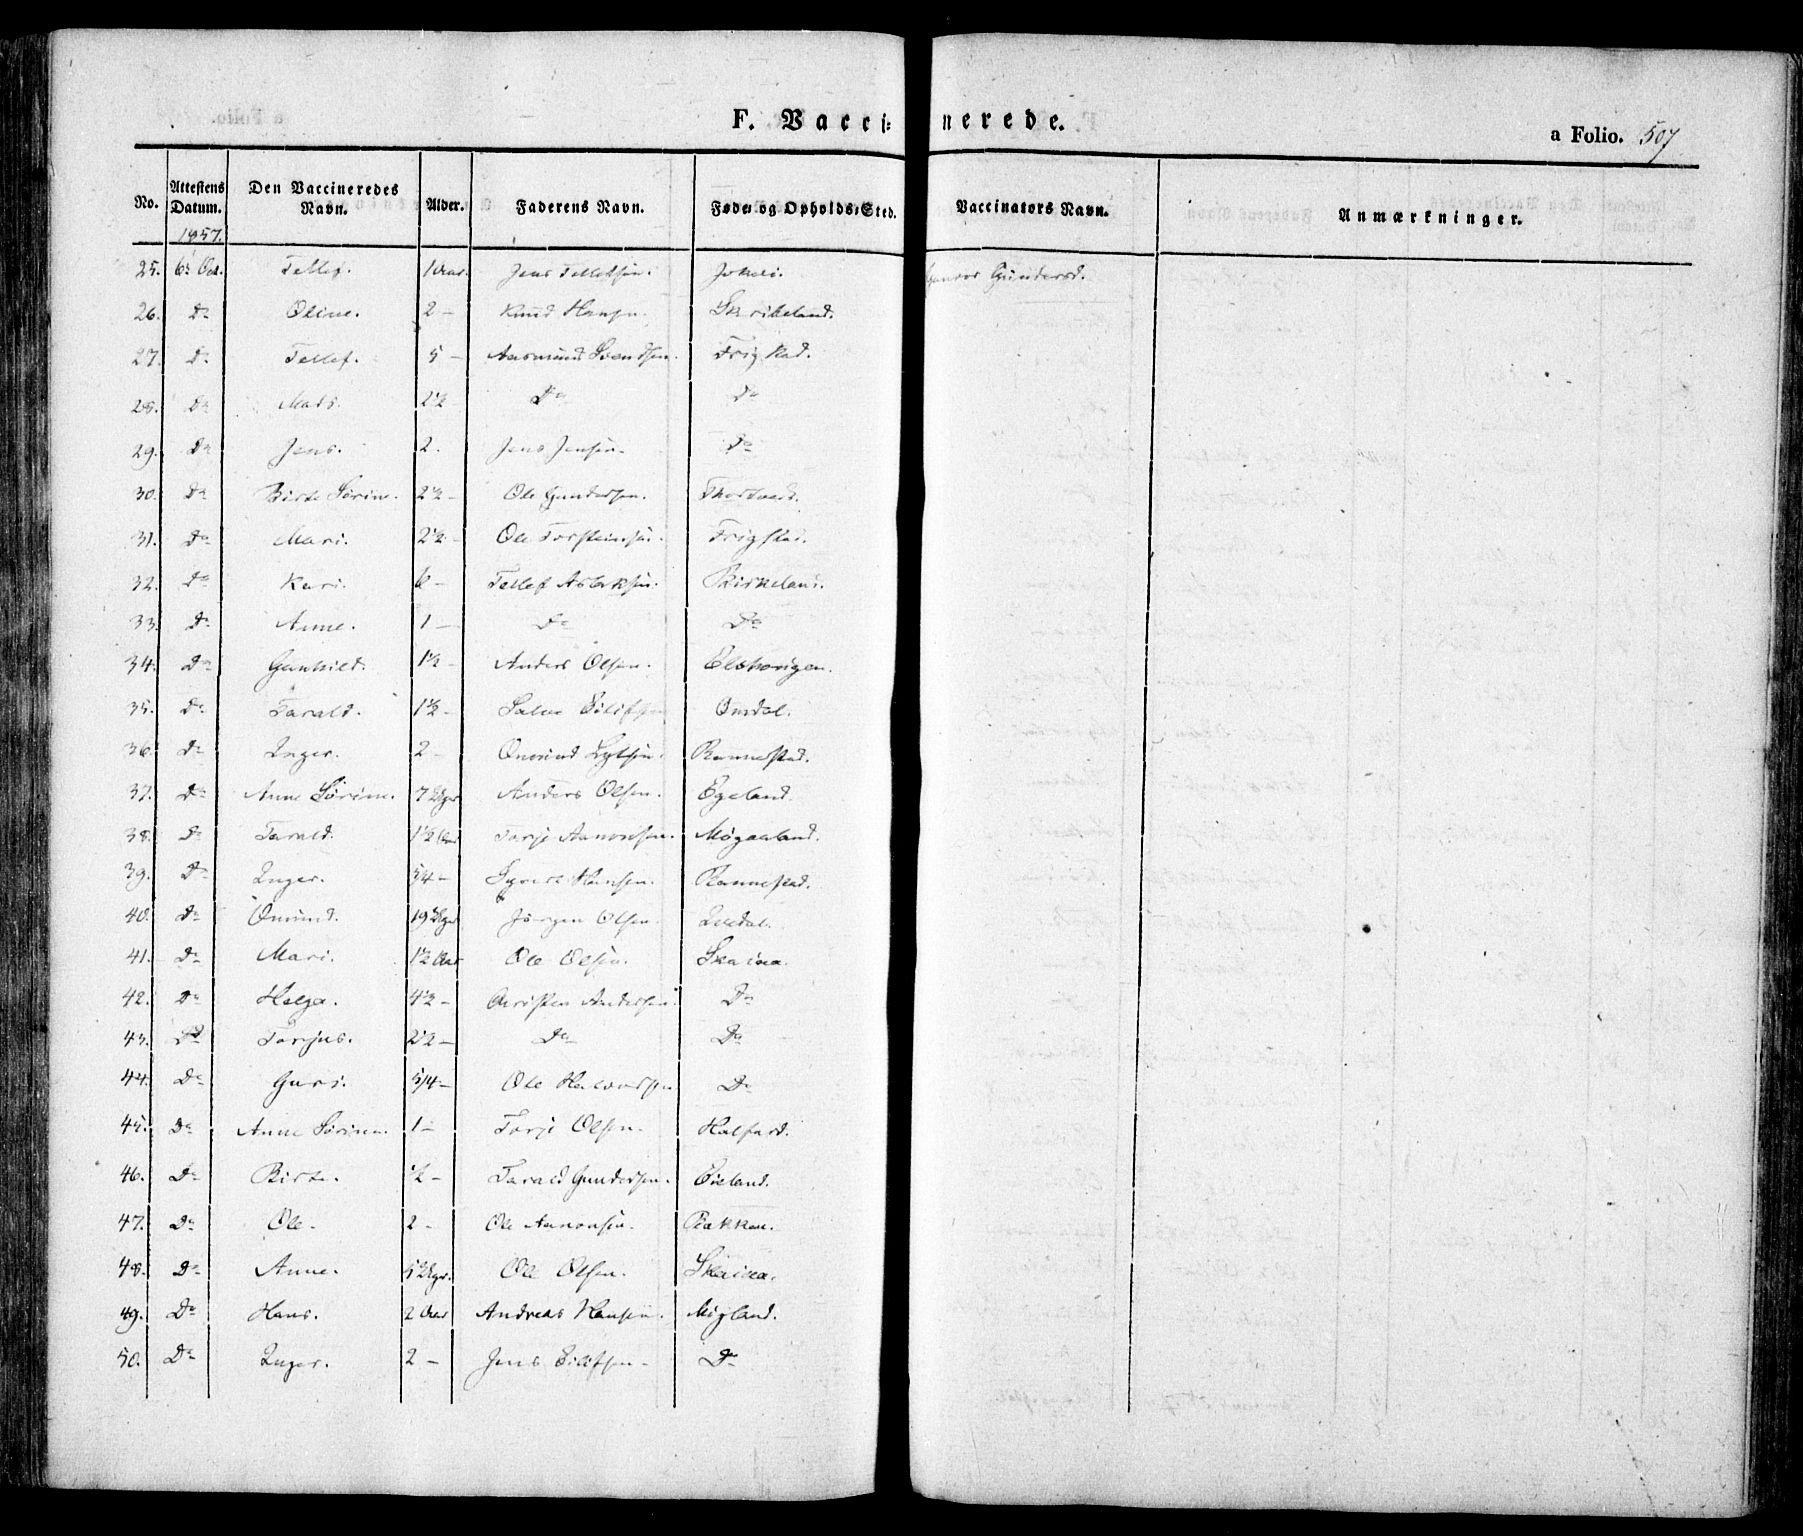 F. Vaccinerede.
a Folio. 507
No. Attestens Datum. Den Vaccineredes Navn. Alder. Faderens Navn. Føde- og Opholds-Sted. Vaccinators Navn. Anmærkninger.
1857.
25. 6' Oct. Tellef. 1 Aar. Jens Tellefsen. Gundersd.
26. Do Oline. 2 - Knud Hansen. Skrikeland.
27. Do Tellef. 5 - Aasmund Svendsen. Frigstad.
28. Do Mads. 2½ Do Do
29. Do Jens. 2. Jens Jensen. Do
30. Do Birte Sørine. 2½ - Ole Gundersen. Thortvedt.
31. Do Mari. 2½ - Ole Torsteinsen. Frigstad.
32. Do Kari. 6 - Tellef Aslaksen. Birkeland.
33. Do Anne. 1 - Do Do
34. Do Gunhild. 1½ - Anders Olsen.
35. Do Tarald. 1½ - Salve Eilifsen Omdal.
36. Do Inger. 2 - Omund Rannestad.
37. Do Anne Sørine. 7 Uger Anders Olsen. Egeland.
38. Do Tarald. 1½ Aar Torje Aanonsen. Møgaaland.
39. Do Inger. 5/4 - Syvert Hansen. Rannestad.
40. Do Omund. 19 Uger Jörgen Olsen.
41. Do Mari. 1½ Aar Ole Olsen. Skaiaa.
42. Do Helga. 4½ - Christen Andersen. Do
43. Do Torjus. 2½ - Do Do
44. Do Guri. 5/4 - Ole Halvorsen Do
45. Do Anne Sørine. 1 - Torje Olsen.
46. Do Birte. ½ - Tarald Gundersen. Øieland.
47. Do Ole. 2 - Ole Aanonsen. Bakken.
48. Do Anne. Uger. Ole Olsen. Skaiaa.
49. Do Hans. 2 Aar Andreas Hansen. Møgland.
50. Do Inger. 2 - Jens Eilifsen - Do